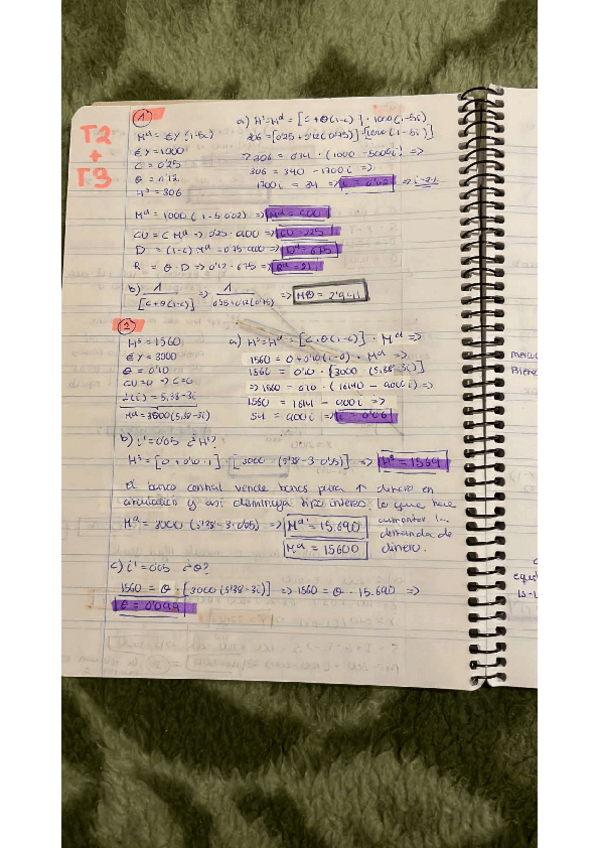 T2
+
T3
1
M^d = €Y (1-5i)
€Y = 1000
C = 0'25
θ = 0'12
H^s = 306
a) H^s = H^d = [c + θ(1-c)] · 1000(1-5i)
306 = [0'25 + 0'12(0'75)] · [1000(1-5i)]
=> 306 = 0'34 · (1000 - 5000i) =>
306 = 340 - 1700i =>
1700i = 34 => i = 0'02 => i = 2%
M^d = 1000 (1-5·0'02) => M^d = 900
CU = C·M^d => 0'25 · 900 => CU = 225
D = (1-c) M^d = 0'75 · 900 => D^d = 675
R = θ · D => 0'12 · 675 => R^d = 81
b) 1/[c+θ(1-c)] => 1/0'25+0'12(0'75) => MΘ = 2'941
2
H^s = 1560
€Y = 3000
θ = 0'10
CU = 0 -> C = 0
L(i) = 5,38 - 3i
M^d = 3000(5,38-3i)
a) H^s = H^d = [c+θ(1-c)] · M^d =>
1560 = 0 + 0'10(1-0) · M^d =>
1560 = 0'10 · [3000 (5,38-3i)]
=> 1560 = 0'10 · (16140 - 9000i) =>
1560 = 1614 - 900i =>
54 = 900i => i = 0'06
b) i' = 0'05 ¿H^s?
H^s = [0 + 0'10 · 1] · [3000 · (5'38-3·0'05)] => H^s = 1569
el banco central vende bonos para ↑ dinero en
circulación y así disminuya tipo interes. lo que hace
aumentar la
demanda de
dinero.
M^d = 3000 (5'38-3·0'05) => M^d' = 15.690
M^d = 15600
c) i' = 0'05 ¿θ?
1560 = θ · [3000(5'38-3i)] => 1560 = θ · 15.690 =>
θ = 0'099